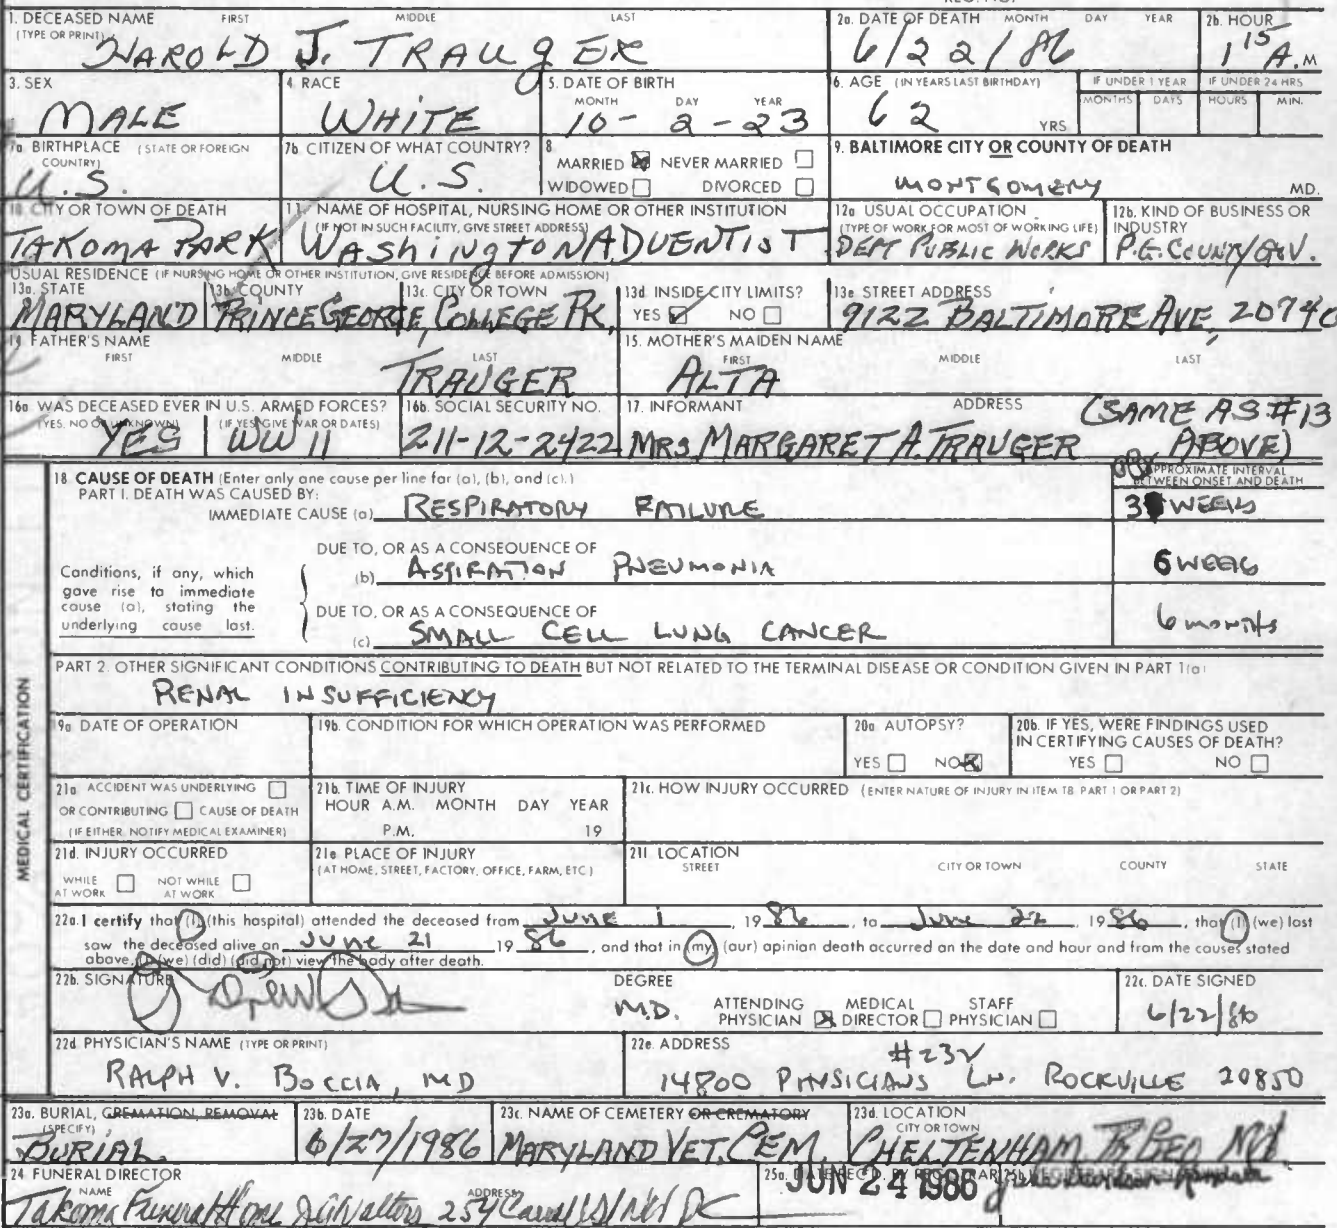 1. DECEASED NAME FIRST MIDDLE LAST
(TYPE OR PRINT)
HAROLD J. TRAUGER
2a. DATE OF DEATH MONTH DAY YEAR
6/22/86
2b. HOUR
1 15 A.M
3. SEX
MALE
4. RACE
WHITE
5. DATE OF BIRTH
MONTH DAY YEAR
10 - 2 - 23
6. AGE (IN YEARS LAST BIRTHDAY)
62 YRS
IF UNDER 1 YEAR
MONTHS DAYS
IF UNDER 24 HRS
HOURS MIN.
7a. BIRTHPLACE (STATE OR FOREIGN
COUNTRY)
U.S.
7b. CITIZEN OF WHAT COUNTRY?
U.S.
8.
MARRIED NEVER MARRIED
WIDOWED DIVORCED
9. BALTIMORE CITY OR COUNTY OF DEATH
MONTGOMERY MD.
10. CITY OR TOWN OF DEATH
TAKOMA PARK
11. NAME OF HOSPITAL, NURSING HOME OR OTHER INSTITUTION
(IF NOT IN SUCH FACILITY, GIVE STREET ADDRESS)
WAshington ADVENTIST
12a. USUAL OCCUPATION
(TYPE OF WORK FOR MOST OF WORKING LIFE)
DEPT PUBLIC WORKS
12b. KIND OF BUSINESS OR
INDUSTRY
P.G. COUNTY GOV.
USUAL RESIDENCE (IF NURSING HOME OR OTHER INSTITUTION, GIVE RESIDENCE BEFORE ADMISSION)
13a. STATE
MARYLAND
13b. COUNTY
PRINCE GEORGE,
13c. CITY OR TOWN
COLLEGE PK,
13d. INSIDE CITY LIMITS?
YES NO
13e STREET ADDRESS
9122 BALTIMORE AVE, 20740
14. FATHER'S NAME
FIRST MIDDLE LAST
TRAUGER
15. MOTHER'S MAIDEN NAME
FIRST MIDDLE LAST
ALTA
16a WAS DECEASED EVER IN U.S. ARMED FORCES?
(YES, NO OR UNKNOWN) (IF YES GIVE WAR OR DATES)
YES WW II
16b. SOCIAL SECURITY NO.
211-12-2422
17. INFORMANT ADDRESS
MRS. MARGARET A. TRAUGER (SAME AS #13
ABOVE)
MEDICAL CERTIFICATION
18 CAUSE OF DEATH (Enter only one cause per line for (a), (b), and (c).)
APPROXIMATE INTERVAL
BETWEEN ONSET AND DEATH
PART I. DEATH WAS CAUSED BY:
IMMEDIATE CAUSE (a) RESPIRATORY FAILURE 3 WEEKS
DUE TO, OR AS A CONSEQUENCE OF
(b) ASPIRATION PNEUMONIA 6 WEEKS
Conditions, if any, which
gave rise to immediate
cause (a), stating the
underlying cause last.
DUE TO, OR AS A CONSEQUENCE OF
(c) SMALL CELL LUNG CANCER 6 months
PART 2. OTHER SIGNIFICANT CONDITIONS CONTRIBUTING TO DEATH BUT NOT RELATED TO THE TERMINAL DISEASE OR CONDITION GIVEN IN PART 1(a)
RENAL INSUFFICIENCY
19a DATE OF OPERATION
19b. CONDITION FOR WHICH OPERATION WAS PERFORMED
20a AUTOPSY?
YES NO
20b. IF YES, WERE FINDINGS USED
IN CERTIFYING CAUSES OF DEATH?
YES NO
21a ACCIDENT WAS UNDERLYING
OR CONTRIBUTING CAUSE OF DEATH
(IF EITHER, NOTIFY MEDICAL EXAMINER)
21b. TIME OF INJURY
HOUR A.M. MONTH DAY YEAR
P.M. 19
21c. HOW INJURY OCCURRED (ENTER NATURE OF INJURY IN ITEM 18. PART 1 OR PART 2)
21d. INJURY OCCURRED
WHILE AT WORK NOT WHILE AT WORK
21e PLACE OF INJURY
(AT HOME, STREET, FACTORY, OFFICE, FARM, ETC)
21f. LOCATION
STREET CITY OR TOWN COUNTY STATE
22a. I certify that (I) (this hospital) attended the deceased from JUNE 1, 1986, to June 22, 1986, that (I) (we) last
saw the deceased alive on June 21 1986, and that in (my) (our) opinion death occurred on the date and hour and from the causes stated
above, (I) (we) (did) (did not) view the body after death.
22b. SIGNATURE
DEGREE
M.D.
ATTENDING PHYSICIAN MEDICAL DIRECTOR STAFF PHYSICIAN
22c. DATE SIGNED
6/22/86
22d. PHYSICIAN'S NAME (TYPE OR PRINT)
RALPH V. BOCCIA, MD
22e. ADDRESS
#232
14800 PHYSICIANS LN. ROCKVILLE 20850
23a. BURIAL, CREMATION, REMOVAL
(SPECIFY)
BURIAL
23b. DATE
6/27/1986
23c. NAME OF CEMETERY OR CREMATORY
MARYLAND VET. CEM.
23d. LOCATION
CITY OR TOWN
CHELTENHAM Md.
24 FUNERAL DIRECTOR
NAME ADDRESS
Takoma Funeral Home 254 Carroll St NW DC
JUN 24 1986